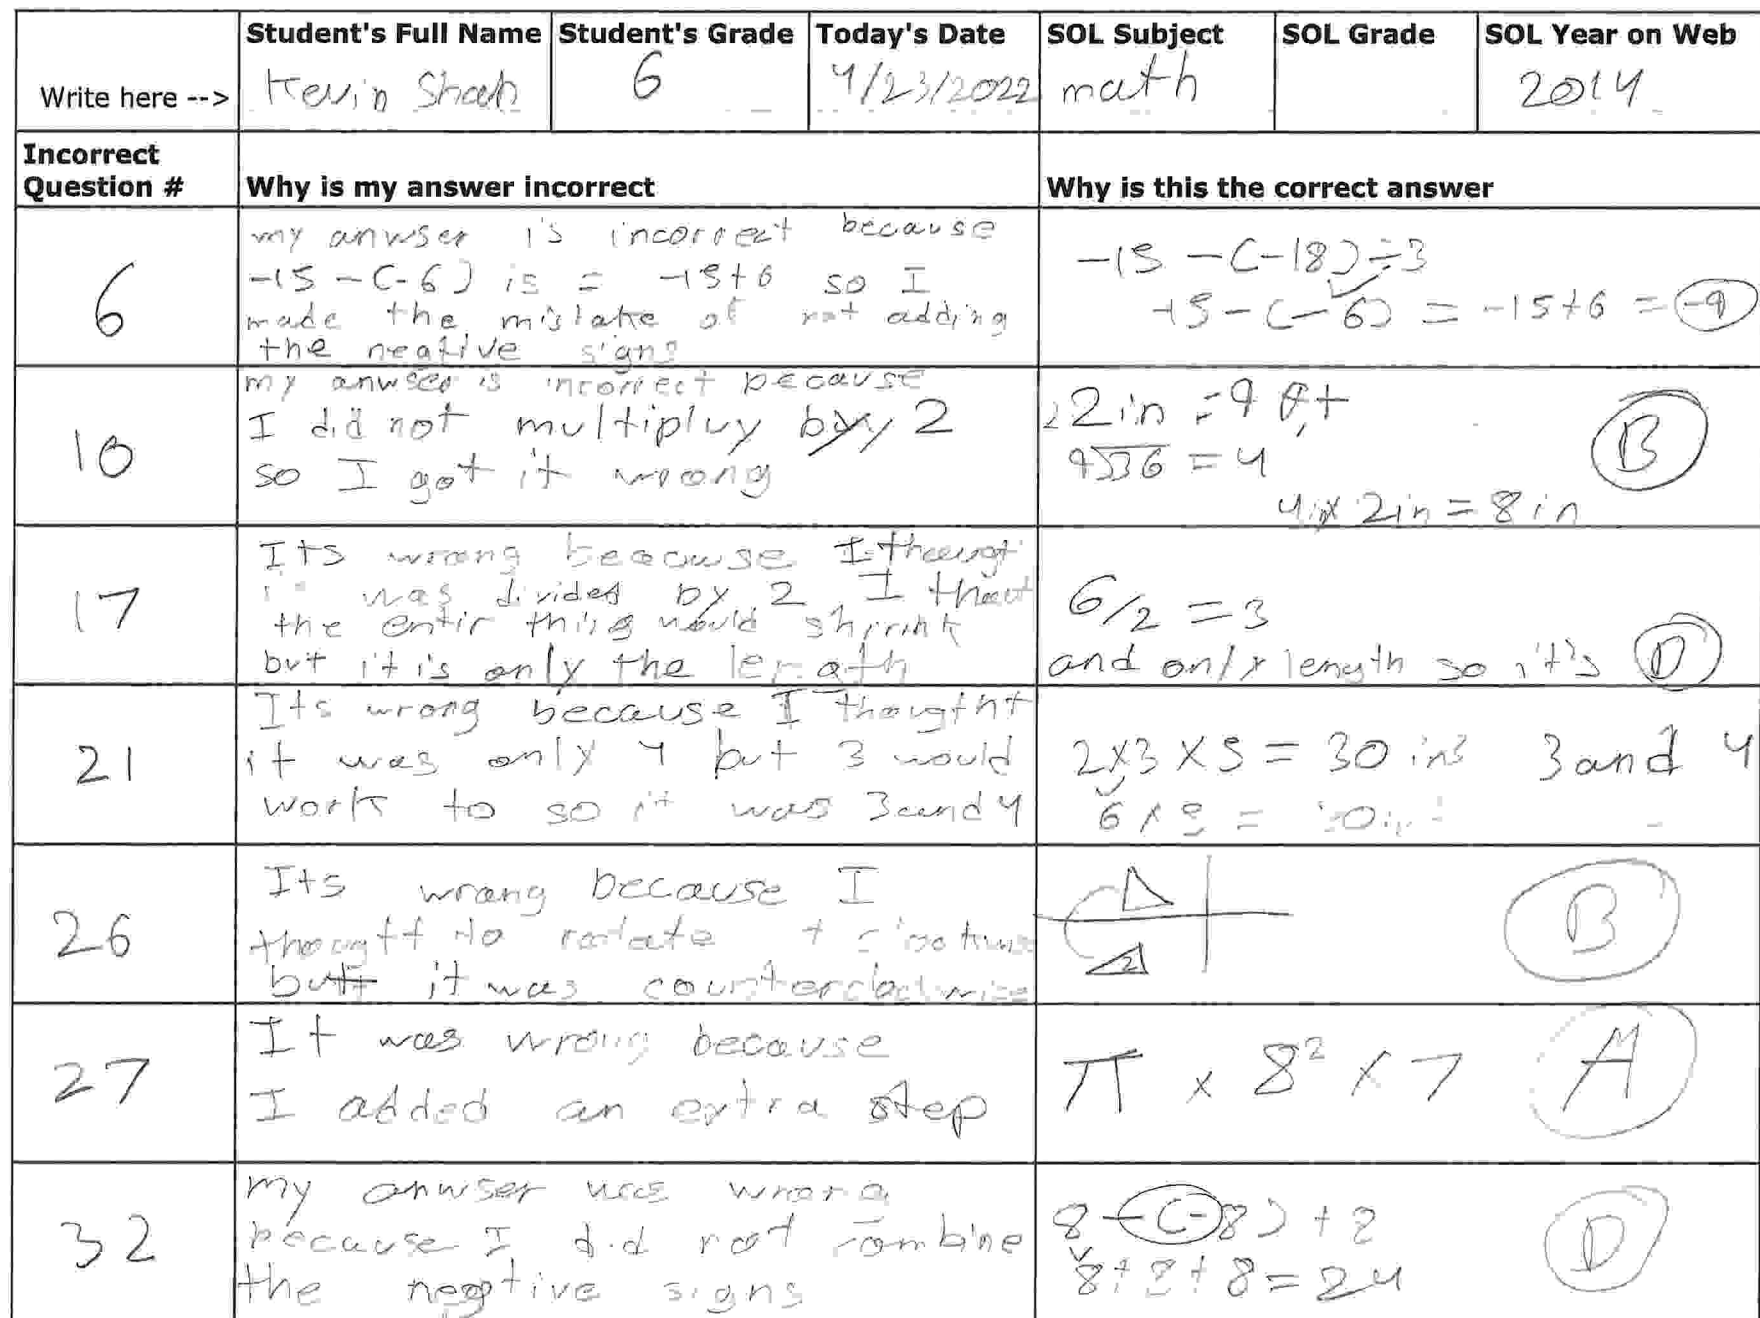 Student's Full Name Student's Grade Today's Date SOL Subject SOL Grade SOL Year on Web
Write here --> Kevin Shah 6 4/23/2022 math 2014
Incorrect
Question # Why is my answer incorrect Why is this the correct answer
6
my anwser is incorrect because
-15 - (-6) is = -15+6 so I
made the mistake of not adding
the neative signs
-15 - (-18) ÷ 3
-15 - (-6) = -15+6 = -9
10
my anwser is incorrect because
I did not multipluy by 2
so I got it wrong
2in = 9 ft
9√36 = 4
4 x 2in = 8in
B
17
Its wrong because I
was divided by 2 I
the entir thing would shrink
but it is only the length
6/2 = 3
and only length so it's D
21
Its wrong because I thougtht
it was only 4 but 3 would
work to so it was 3 and 4
2x3 x 5 = 30 in³ 3 and 4
6 x 5 = 30in³
26
Its wrong because I
rotate
but it was counterclockwise
2
B
27
It was wrong because
I added an extra step
π x 8² x 7 A
32
my anwser was wrong
because I did not combine
the negtive signs
8 - (-8) + 8
8 + 8 + 8 = 24
D